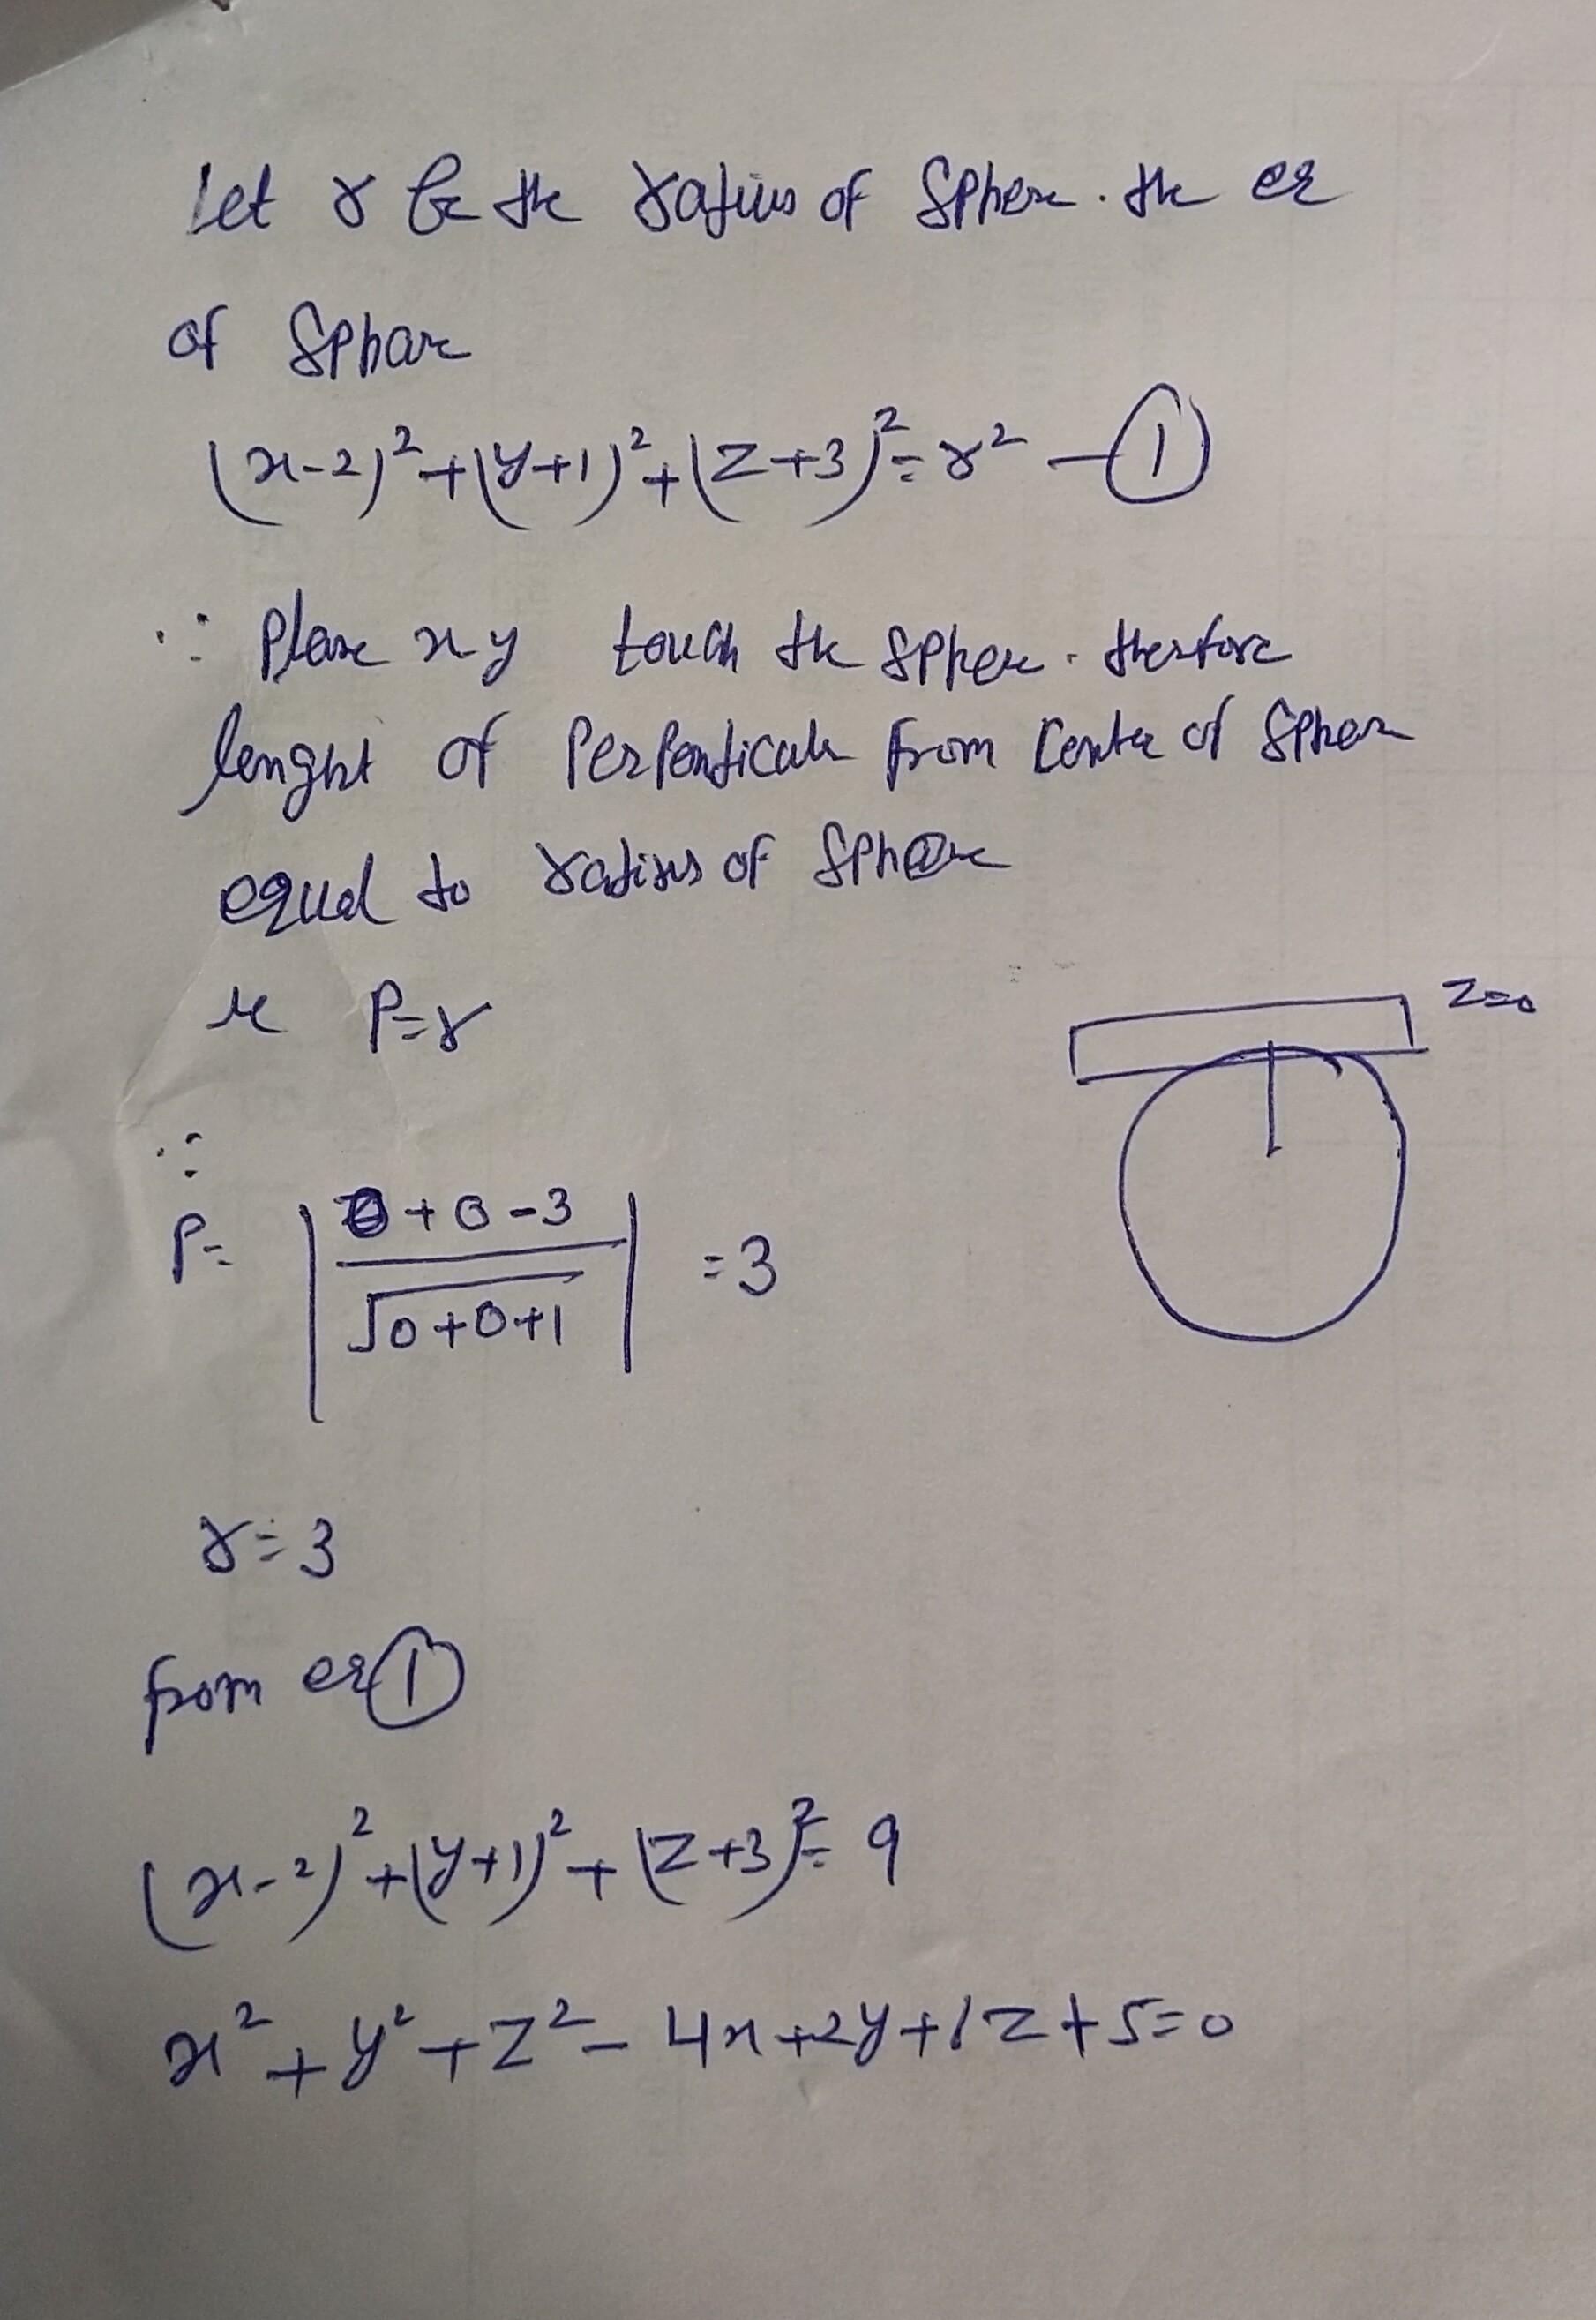 Let r be the radius of sphere. the eq
of sphare
(x-2)²+(y+1)²+(z+3)²=r² —①
∵ Plane xy touch the sphere. therfore
lenght of Perpendicular from center of sphere
equal to radius of sphere
ie P=r
∵
P= |0+0-3 / √0+0+1| =3
z=0
r=3
from eq ①
(x-2)²+(y+1)²+(z+3)²=9
x²+y²+z²-4x+2y+6z+5=0